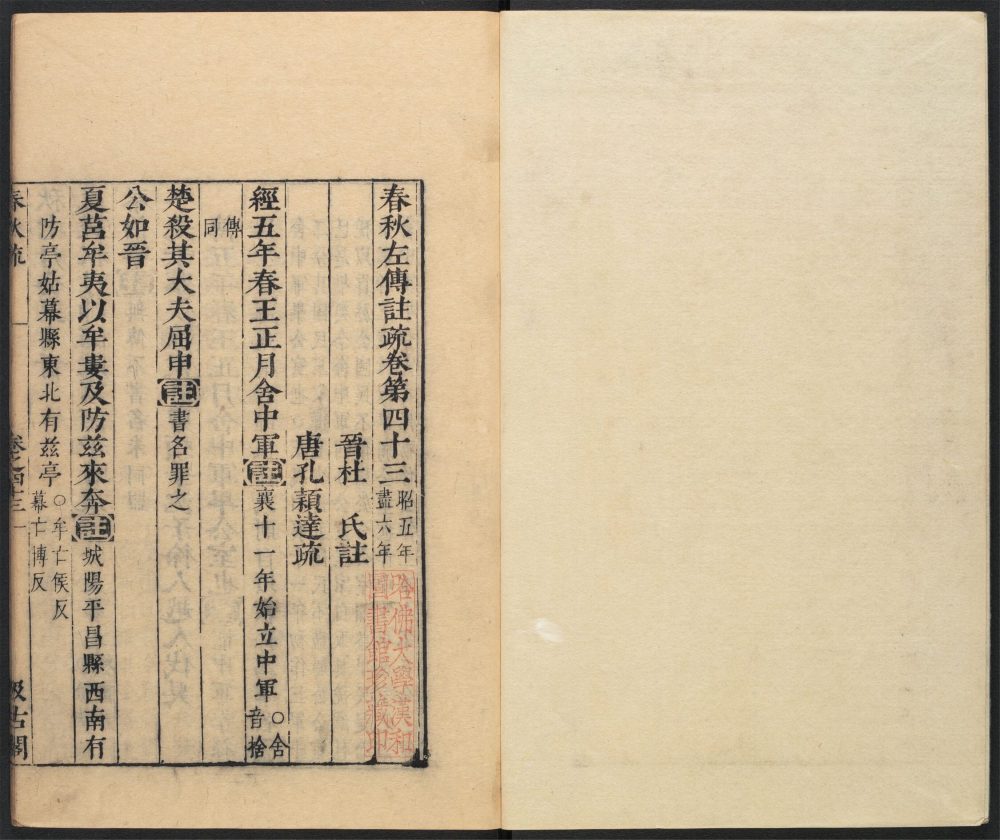 春秋左傳註疏卷第四十三昭五年盡六年
晉杜　氏註
唐孔穎達疏
經五年春王正月舍中軍註襄十一年始立中軍○舍音捨
傳同
楚殺其大夫屈申註書名罪之
公如晉
夏莒牟夷以牟婁及防茲來奔註城陽平昌縣西南有
防亭姑幕縣東北有茲亭○牟亡侯反幕亡博反
春秋疏　卷之四十三　一　汲古閣
哈佛大學漢和
圖書館珍藏印